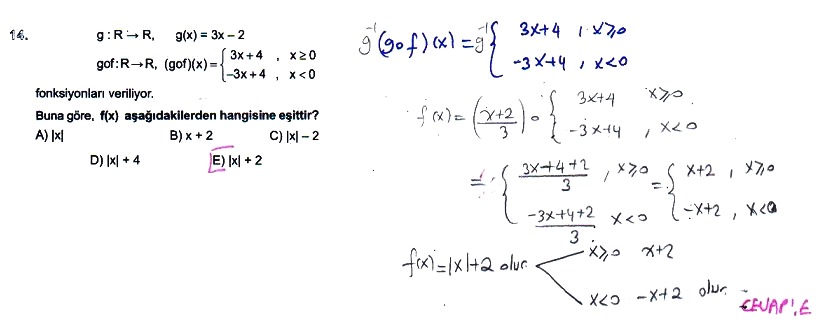 14.
g : R → R, g(x) = 3x − 2
gof : R→R, (gof)(x) = { 3x + 4 , x ≥ 0
−3x + 4 , x < 0
fonksiyonları veriliyor.
Buna göre, f(x) aşağıdakilerden hangisine eşittir?
A) |x| B) x + 2 C) |x| − 2
D) |x| + 4 E) |x| + 2
g⁻¹(gof)(x) = g⁻¹ { 3x+4 , x≥0
-3x+4 , x<0
f(x) = (x+2/3) o { 3x+4 x≥0
-3x+4 , x<0
= { 3x+4+2/3 , x≥0 = { x+2 , x≥0
-3x+4+2/3 x<0 -x+2 , x<0
f(x)=|x|+2 olur x≥0 x+2
x<0 -x+2 olur
CEVAP: E